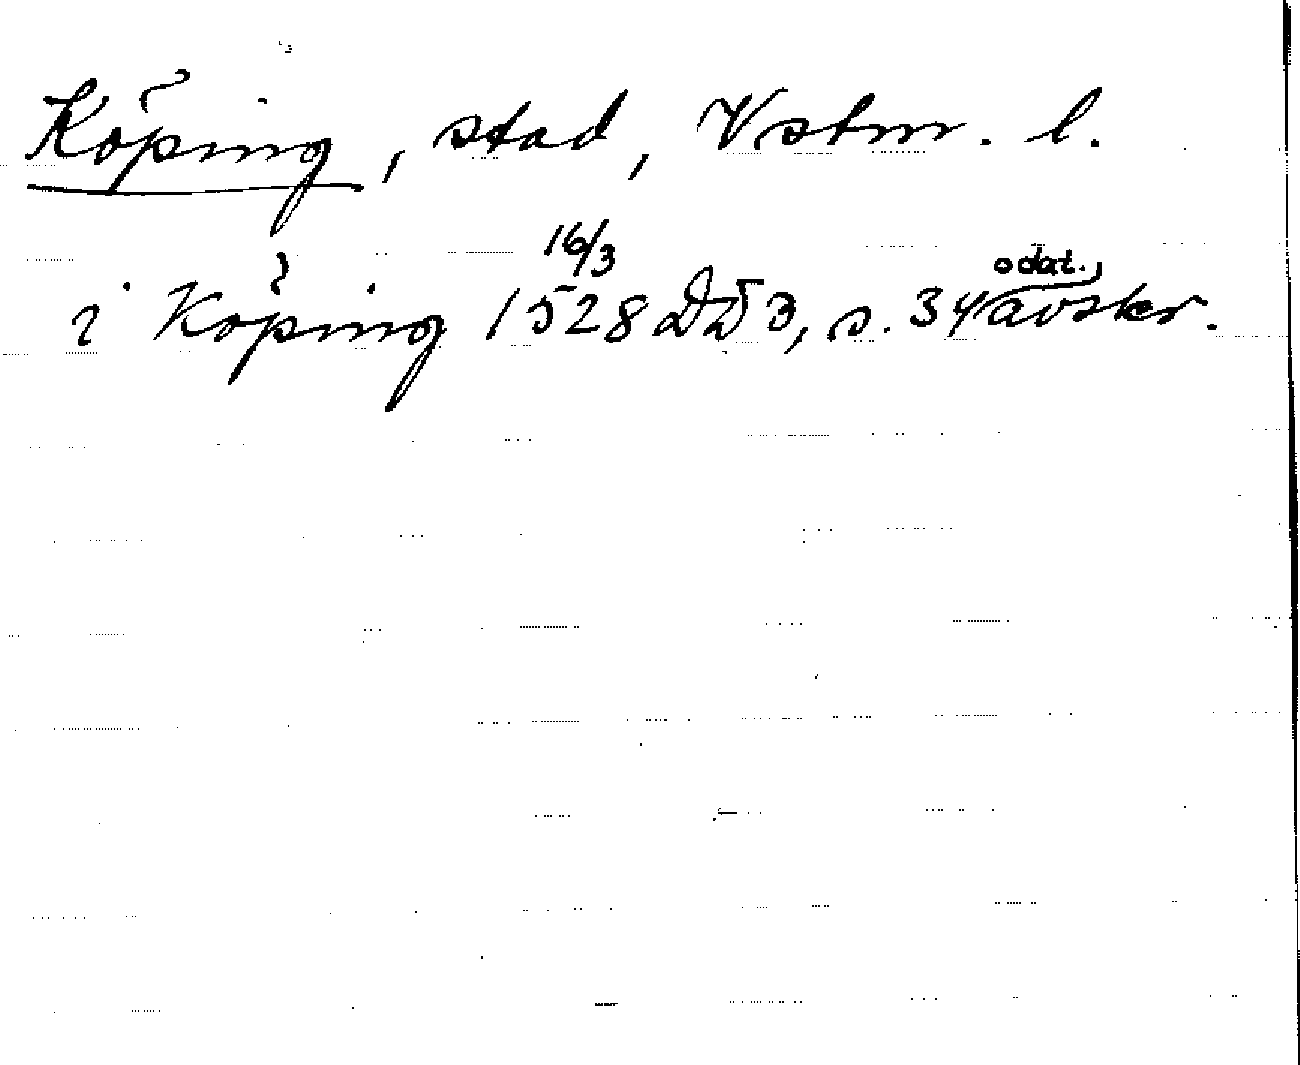 Köping, stad, Vstm. l.
i Köping 16/3 1528 DD 3, s. 34 odat. avskr.